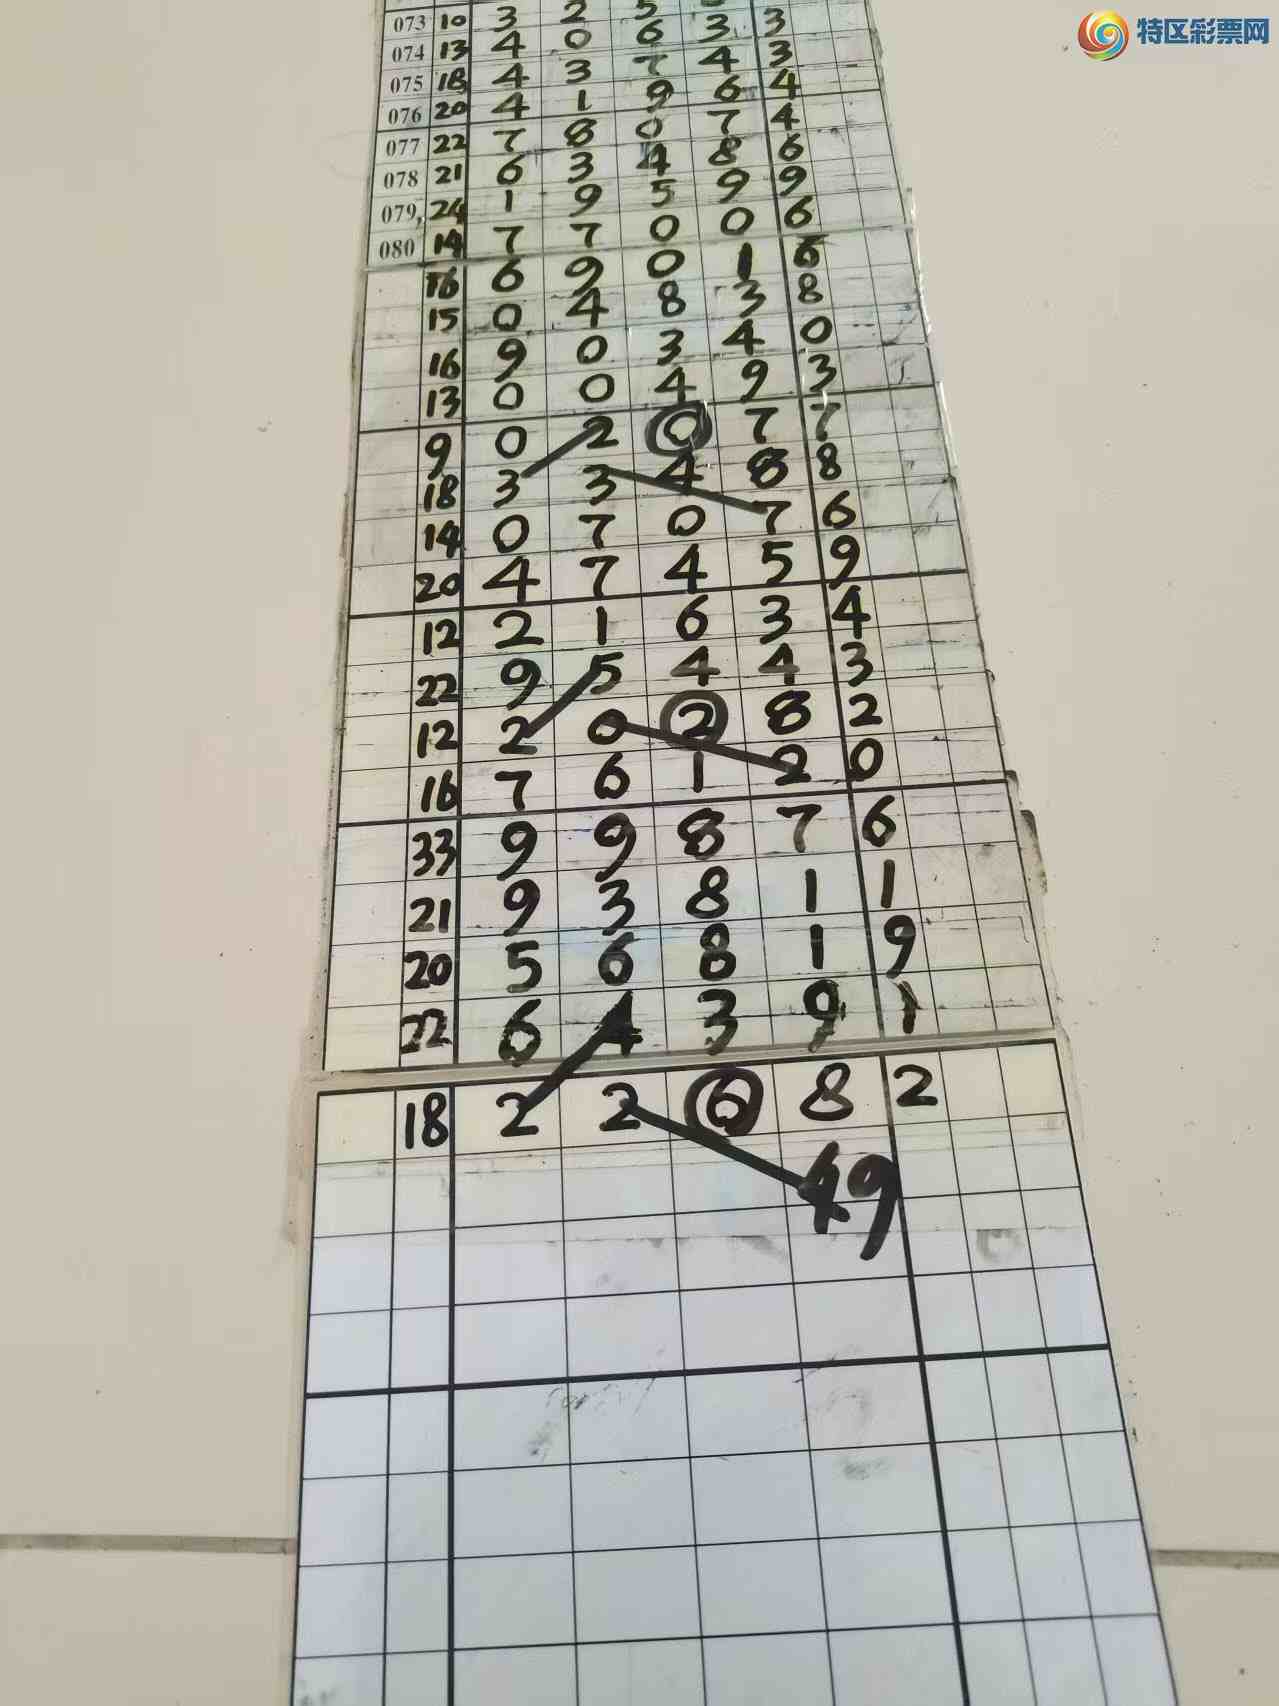 特区彩票网
073 10 3 2 5 3 3
074 13 4 0 6 3 3
075 18 4 3 7 4 3
076 20 4 1 9 6 4
077 22 7 8 0 7 4
078 21 6 3 4 8 6
079 24 1 9 5 9 9
080 14 7 7 0 0 6
16 6 9 0 1 6
15 0 4 8 3 8
16 9 0 3 4 0
13 0 0 4 9 3
9 0 2 0 7 7
18 3 3 4 8 8
14 0 7 0 7 6
20 4 7 4 5 9
12 2 1 6 3 4
22 9 5 4 4 3
12 2 0 2 8 2
16 7 6 1 2 0
33 9 9 8 7 6
21 9 3 8 1 1
20 5 6 8 1 9
22 6 4 3 9 1
18 2 2 6 8 2
49